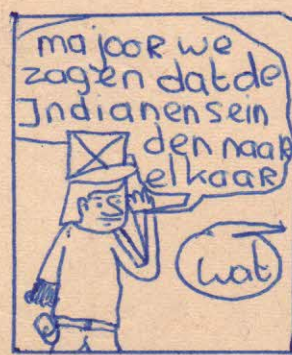 majoor we
zagen dat de
Indianen sein
den naar
elkaar
wat